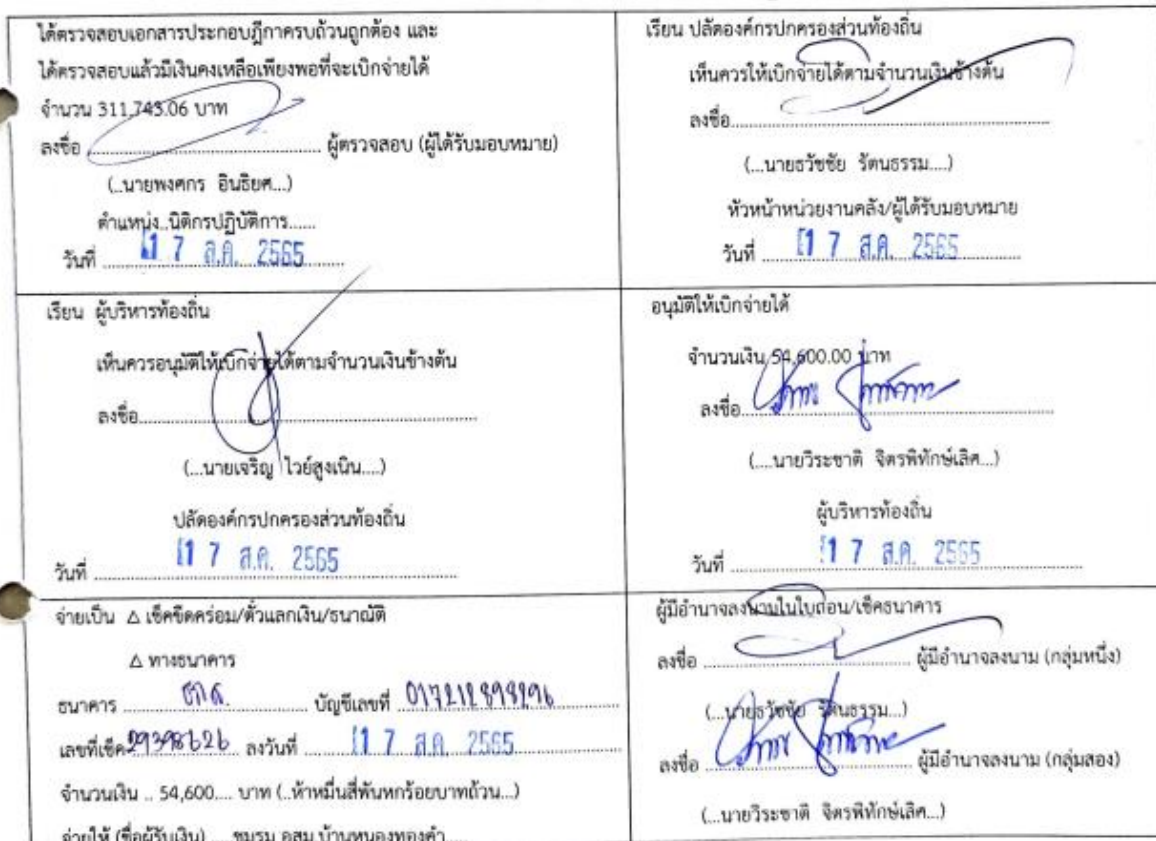 ได้ตรวจสอบเอกสารประกอบฎีกาครบถ้วนถูกต้อง และ
ได้ตรวจสอบแล้วมีเงินคงเหลือเพียงพอที่จะเบิกจ่ายได้
จำนวน 311,743.06 บาท
ลงชื่อ ........................................ ผู้ตรวจสอบ (ผู้ได้รับมอบหมาย)
(..นายพงศกร อินธิยศ...)
ตำแหน่ง..นิติกรปฏิบัติการ......
วันที่ 17 ส.ค. 2565
เรียน ปลัดองค์กรปกครองส่วนท้องถิ่น
เห็นควรให้เบิกจ่ายได้ตามจำนวนเงินข้างต้น
ลงชื่อ........................................
(...นายธวัชชัย รัตนธรรม....)
หัวหน้าหน่วยงานคลัง/ผู้ได้รับมอบหมาย
วันที่ 17 ส.ค. 2565
เรียน ผู้บริหารท้องถิ่น
เห็นควรอนุมัติให้เบิกจ่ายได้ตามจำนวนเงินข้างต้น
ลงชื่อ........................................
(...นายเจริญ ไวย์สูงเนิน....)
ปลัดองค์กรปกครองส่วนท้องถิ่น
วันที่ 17 ส.ค. 2565
อนุมัติให้เบิกจ่ายได้
จำนวนเงิน 54,600.00 บาท
ลงชื่อ........................................
(....นายวิระชาติ จิตรพิทักษ์เลิศ...)
ผู้บริหารท้องถิ่น
วันที่ 17 ส.ค. 2565
จ่ายเป็น △ เช็คขีดคร่อม/ตั๋วแลกเงิน/ธนาณัติ
△ ทางธนาคาร
ธนาคาร ธกส. บัญชีเลขที่ 017212898296
เลขที่เช็ค 29398626 ลงวันที่ 17 ส.ค. 2565
จำนวนเงิน .. 54,600.... บาท (..ห้าหมื่นสี่พันหกร้อยบาทถ้วน...)
จ่ายให้ (ชื่อผู้รับเงิน) .... ชมรม อสม.บ้านหนองทองคำ....
ผู้มีอำนาจลงนามในใบถอน/เช็คธนาคาร
ลงชื่อ ........................................ ผู้มีอำนาจลงนาม (กลุ่มหนึ่ง)
(...นายธวัชชัย รัตนธรรม...)
ลงชื่อ ........................................ ผู้มีอำนาจลงนาม (กลุ่มสอง)
(...นายวิระชาติ จิตรพิทักษ์เลิศ...)